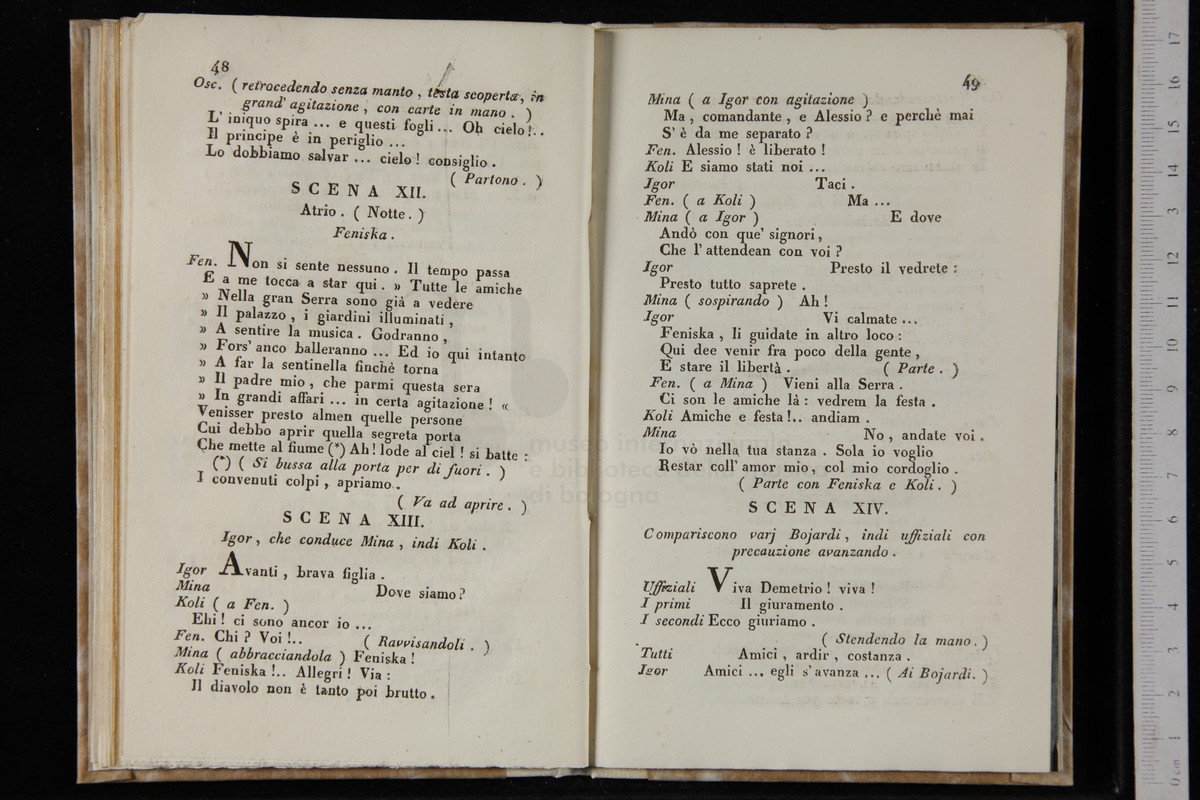 48
Osc. ( retrocedendo senza manto , testa scoperta, in
grand' agitazione , con carte in mano . )
L' iniquo spira ... e questi fogli... Oh cielo!..
Il principe è in periglio ...
Lo dobbiamo salvar ... cielo ! consiglio .
( Partono . )
SCENA XII.
Atrio . ( Notte. )
Feniska .
Fen. Non si sente nessuno . Il tempo passa
E a me tocca a star qui . » Tutte le amiche
» Nella gran Serra sono già a vedere
» Il palazzo , i giardini illuminati ,
» A sentire la musica . Godranno ,
» Fors' anco balleranno ... Ed io qui intanto
» A far la sentinella finchè torna
» Il padre mio , che parmi questa sera
» In grandi affari ... in certa agitazione ! «
Venisser presto almen quelle persone
Cui debbo aprir quella segreta porta
Che mette al fiume (*) Ah! lode al ciel ! si batte :
(*) ( Si bussa alla porta per di fuori . )
I convenuti colpi , apriamo .
( Va ad aprire . )
SCENA XIII.
Igor , che conduce Mina , indi Koli .
Igor Avanti , brava figlia .
Mina Dove siamo?
Koli ( a Fen. )
Ehi ! ci sono ancor io ...
Fen. Chi ? Voi !.. ( Ravvisandoli . )
Mina ( abbracciandola ) Feniska !
Koli Feniska !.. Allegri ! Via :
Il diavolo non è tanto poi brutto .
49
Mina ( a Igor con agitazione )
Ma , comandante , e Alessio ? e perchè mai
S' è da me separato ?
Fen. Alessio ! è liberato !
Koli E siamo stati noi ...
Igor Taci .
Fen. ( a Koli ) Ma ...
Mina ( a Igor ) E dove
Andò con que' signori ,
Che l' attendean con voi ?
Igor Presto il vedrete :
Presto tutto saprete .
Mina ( sospirando ) Ah !
Igor Vi calmate ...
Feniska , li guidate in altro loco :
Qui dee venir fra poco della gente ,
E stare il libertà . ( Parte . )
Fen. ( a Mina ) Vieni alla Serra .
Ci son le amiche là : vedrem la festa .
Koli Amiche e festa !.. andiam .
Mina No , andate voi .
Io vò nella tua stanza . Sola io voglio
Restar coll' amor mio , col mio cordoglio .
( Parte con Feniska e Koli. )
SCENA XIV.
Compariscono varj Bojardi , indi uffiziali con
precauzione avanzando .
Uffiziali Viva Demetrio ! viva !
I primi Il giuramento .
I secondi Ecco giuriamo .
( Stendendo la mano. )
Tutti Amici , ardir , costanza .
Igor Amici ... egli s' avanza ... ( Ai Bojardi. )
museo internazionale
e biblioteca della musica
di bologna
0 cm 1 2 3 4 5 6 7 8 9 10 11 12 13 14 15 16 17